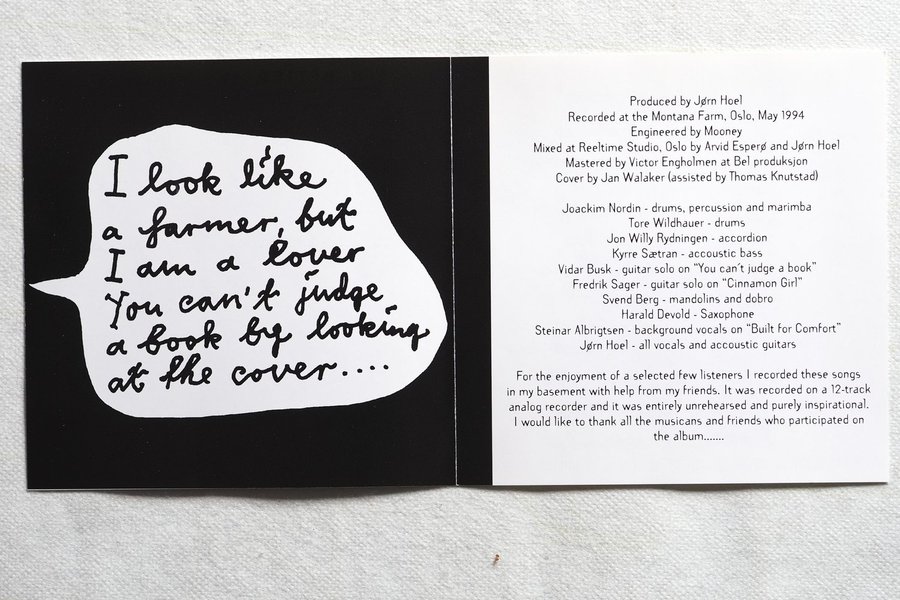 I look like
a farmer, but
I am a lover
You can't judge
a book by looking
at the cover....
Produced by Jørn Hoel
Recorded at the Montana Farm, Oslo, May 1994
Engineered by Mooney
Mixed at Reeltime Studio, Oslo by Arvid Esperø and Jørn Hoel
Mastered by Victor Engholmen at Bel produksjon
Cover by Jan Walaker (assisted by Thomas Knutstad)
Joackim Nordin - drums, percussion and marimba
Tore Wildhauer - drums
Jon Willy Rydningen - accordion
Kyrre Sætran - accoustic bass
Vidar Busk - guitar solo on "You can´t judge a book"
Fredrik Sager - guitar solo on "Cinnamon Girl"
Svend Berg - mandolins and dobro
Harald Devold - Saxophone
Steinar Albrigtsen - background vocals on "Built for Comfort"
Jørn Hoel - all vocals and accoustic guitars
For the enjoyment of a selected few listeners I recorded these songs
in my basement with help from my friends. It was recorded on a 12-track
analog recorder and it was entirely unrehearsed and purely inspirational.
I would like to thank all the musicans and friends who participated on
the album.......